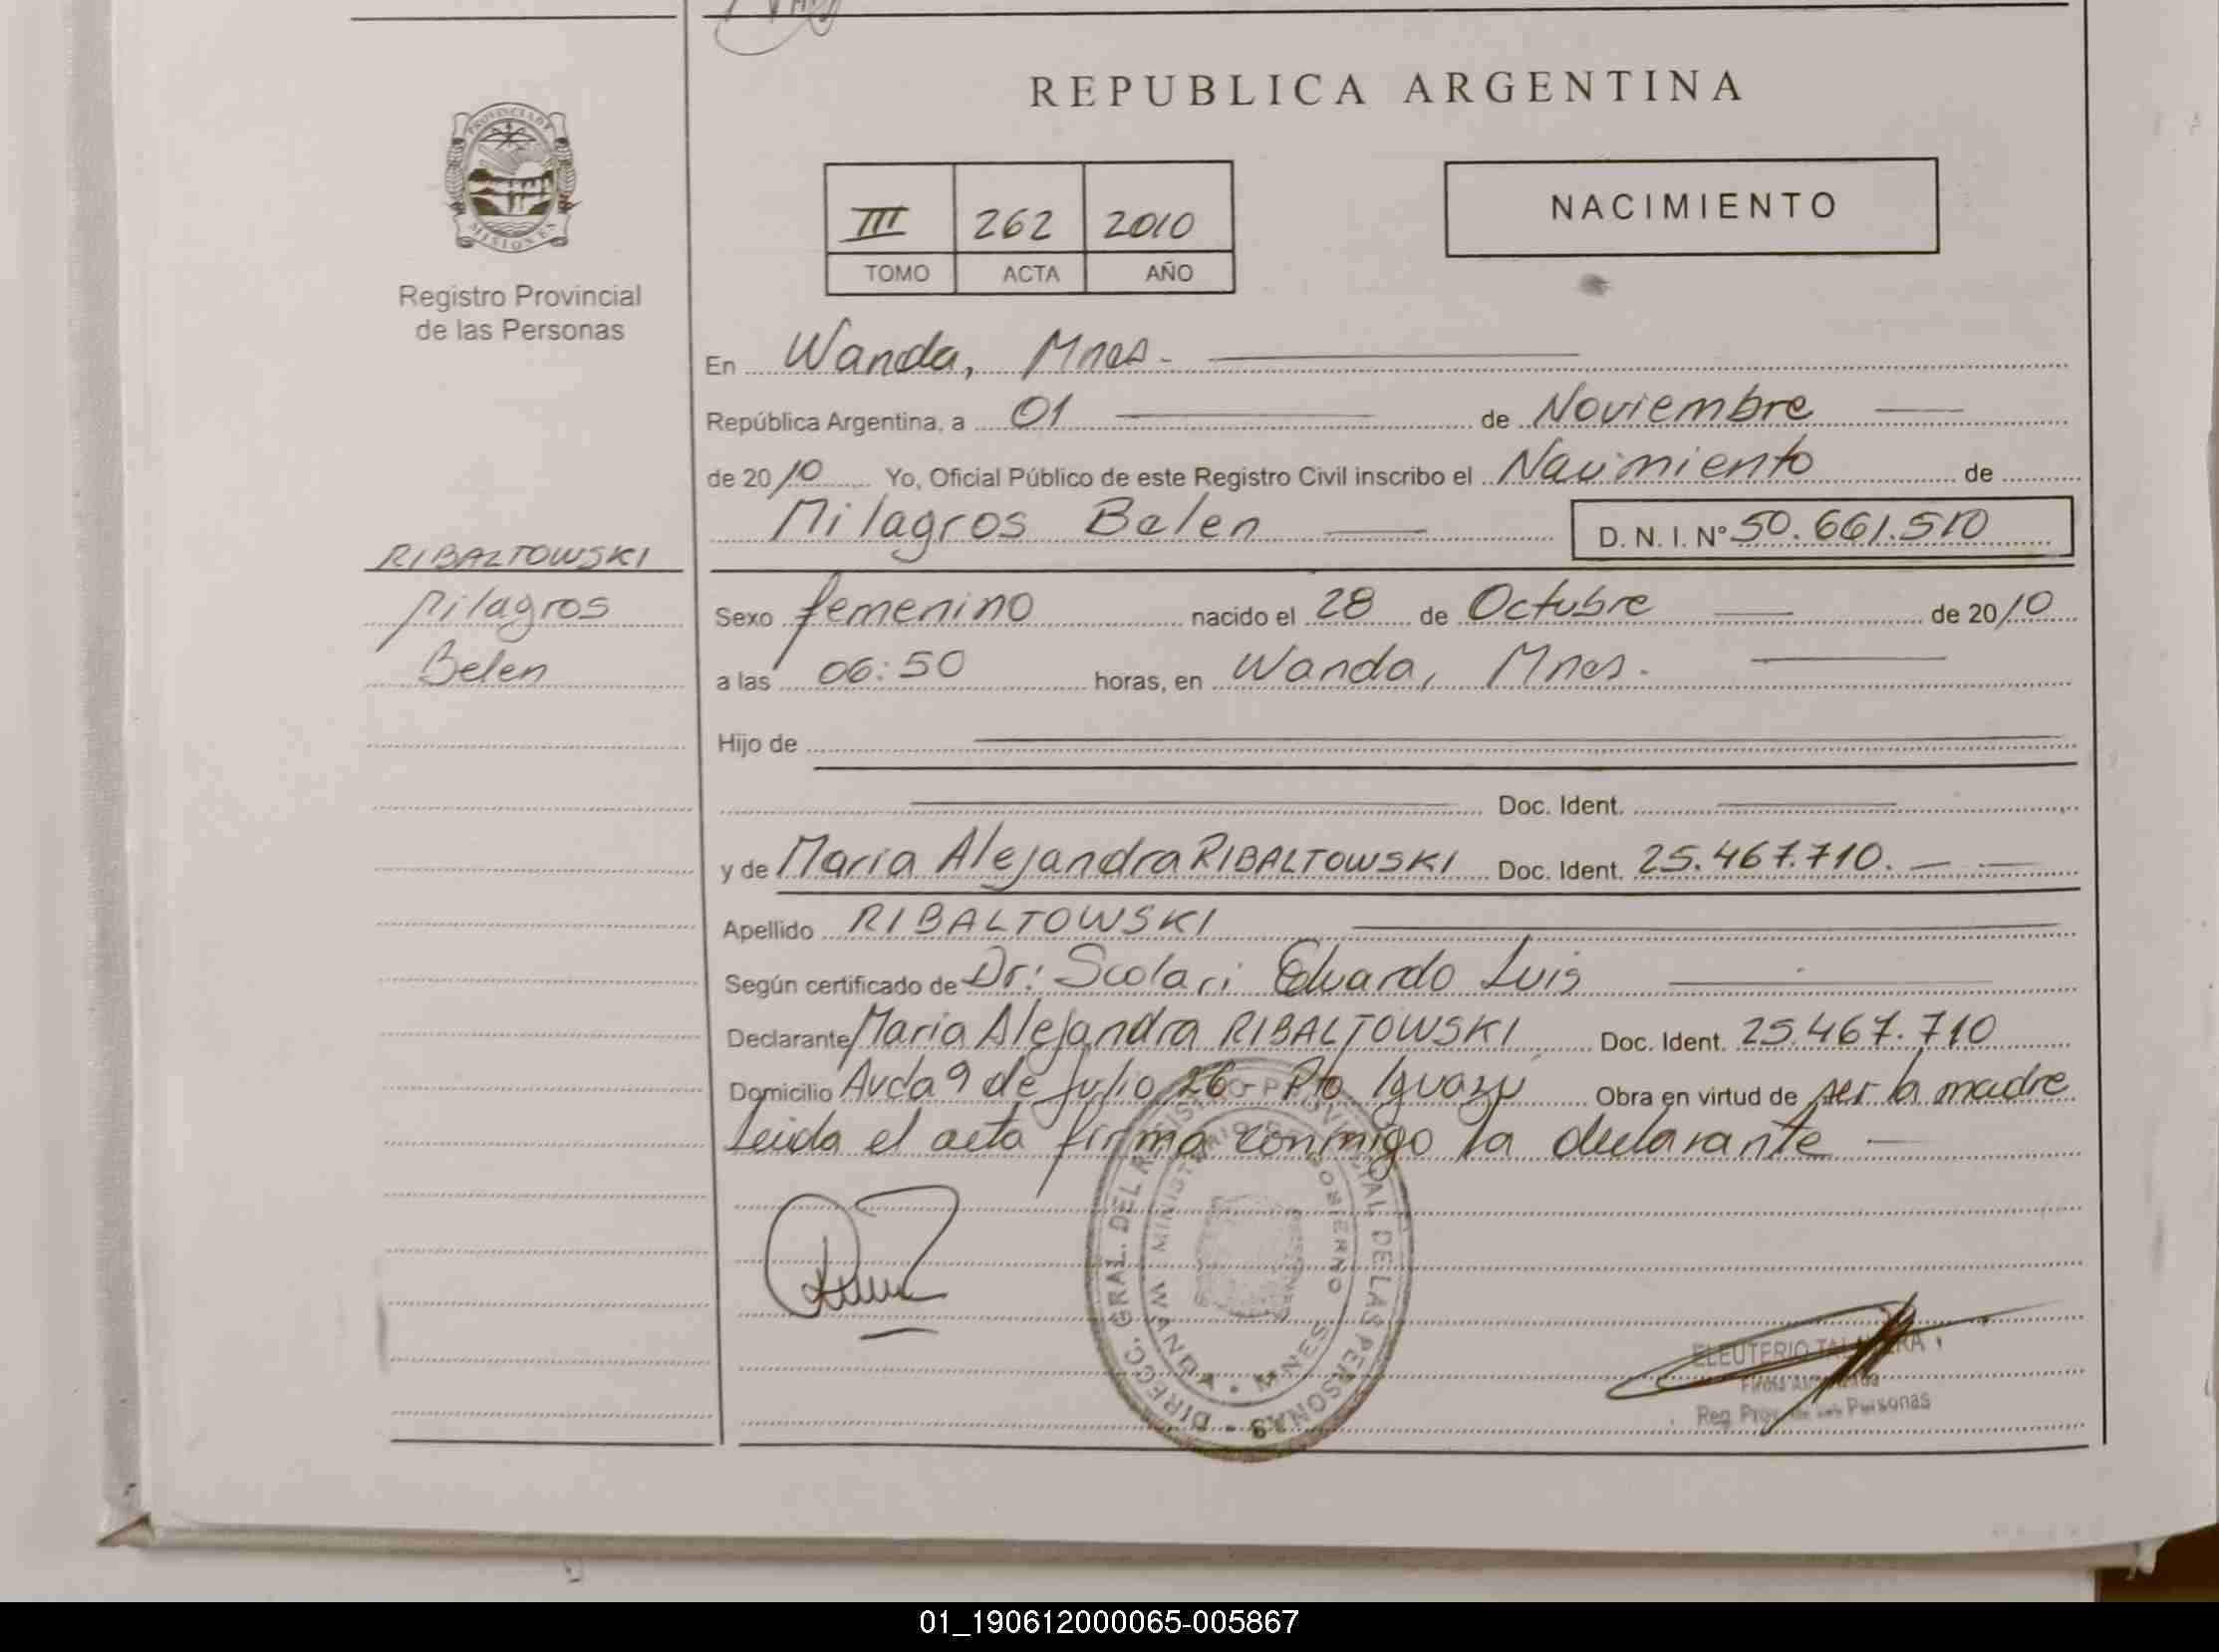 REPUBLICA ARGENTINA
PROVINCIA DE
MISIONES
Registro Provincial
de las Personas
III 262 2010
TOMO ACTA AÑO
NACIMIENTO
En Wanda, Mnes.
República Argentina, a 01 de Noviembre
de 2010 Yo, Oficial Público de este Registro Civil inscribo el Nacimiento de
Milagros Belen D. N. I. N° 50.661.510
RIBALTOWSKI
Milagros
Belen
Sexo femenino nacido el 28 de Octubre de 2010
a las 06:50 horas, en Wanda, Mnes.
Hijo de
Doc. Ident.
y de Maria Alejandra RIBALTOWSKI Doc. Ident. 25.467.710.
Apellido RIBALTOWSKI
Según certificado de Dr: Scolari Eduardo Luis
Declarante Maria Alejandra RIBALTOWSKI Doc. Ident. 25.467.710
Domicilio Avda 9 de Julio 26- Pto Iguazu Obra en virtud de ser la madre
Leida el acta firma conmigo la declarante
DIRECC. GRAL. DEL REGISTRO PROVINCIAL DE LAS PERSONAS
MINISTERIO DE GOBIERNO
WANDA - MNES
ELEUTERIO
Reg. Prov. de las Personas
01_190612000065-005867